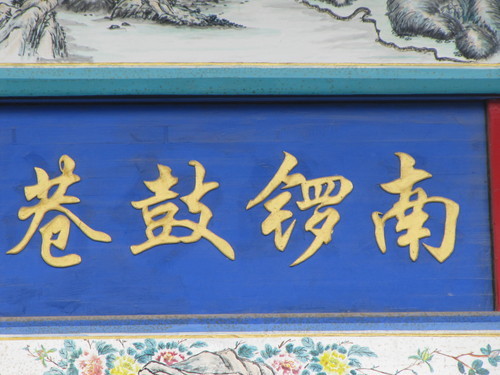 南锣鼓巷